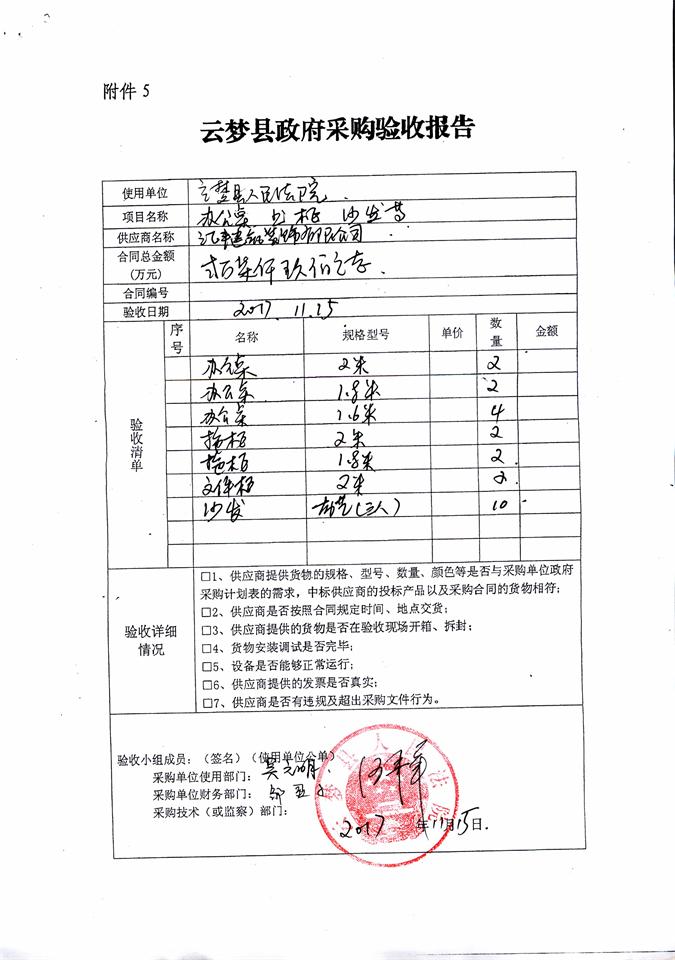 附件 5
云梦县政府采购验收报告
使用单位 云梦县人民法院
项目名称 办公桌 柜 沙发等
供应商名称 装饰有限公司
合同总金额(万元) 柒仟玖佰元
合同编号
验收日期 2017.11.15
验收清单
序号 名称 规格型号 单价 数量 金额
办公桌 2米 2
办公桌 1.8米 2
办公桌 1.6米 4
柜 2米 2
柜 1.8米 2.
文件柜 2米 2.
沙发 (三人) 10
验收详细情况
□1、供应商提供货物的规格、型号、数量、颜色等是否与采购单位政府
采购计划表的需求，中标供应商的投标产品以及采购合同的货物相符；
□2、供应商是否按照合同规定时间、地点交货；
□3、供应商提供的货物是否在验收现场开箱、拆封；
□4、货物安装调试是否完毕；
□5、设备是否能够正常运行；
□6、供应商提供的发票是否真实；
□7、供应商是否有违规及超出采购文件行为。
验收小组成员：（签名）（使用单位公单）
采购单位使用部门：
采购单位财务部门：
采购技术（或监察）部门：
2017年11月15日.